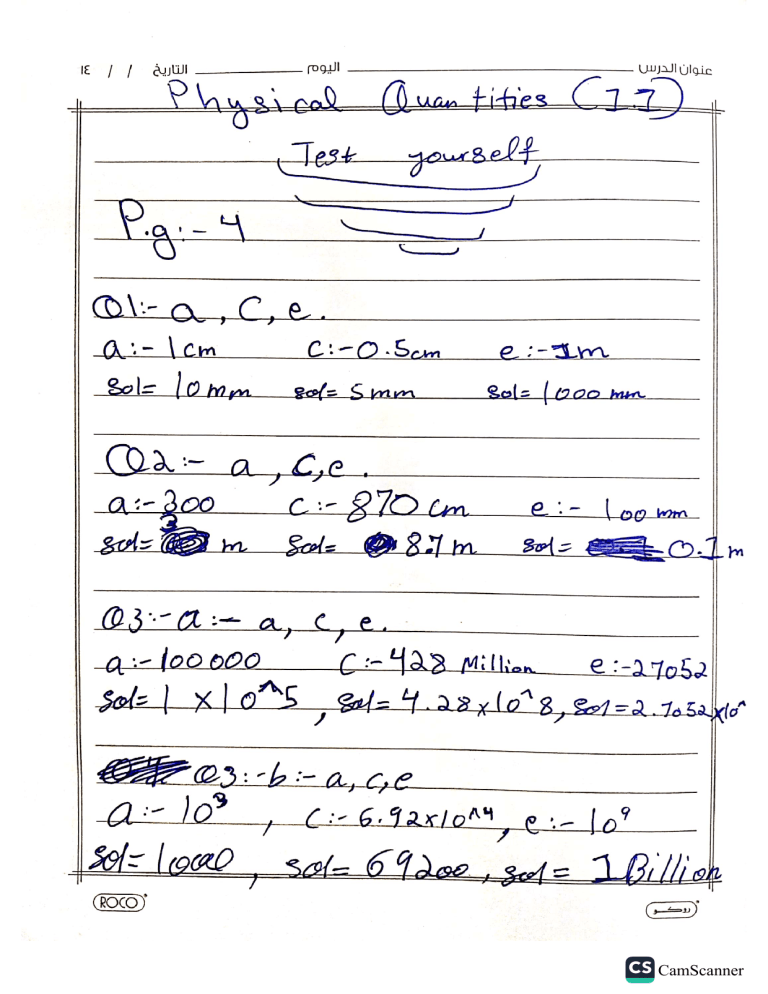 عنوان الدرس ــــــــ اليوم ــــــــ التاريخ / / ١٤
Physical Quantities (1.1)
Test yourself
P.g:- 4
Q1:- a, C, e.
a:- 1cm C:- 0.5cm e:- 1m
sol= 10mm sol= 5mm sol= 1000 mm
Q2:- a, C, e.
a:- 300 C:- 870 cm e:- 100 mm
sol= 3 m sol= 8.7 m sol= 0.1 m
Q3:- a:- a, c, e.
a:- 100000 C:- 428 Million e:- 27052
sol= 1 x 10^5, sol= 4.28x10^8, sol= 2.7052x10^
Q3:- b:- a, c, e
a:- 10³, C:- 6.92x10^4, e:- 10⁹
sol= 1000, sol= 69200, sol= 1 Billion
ROCO روكو
CS CamScanner